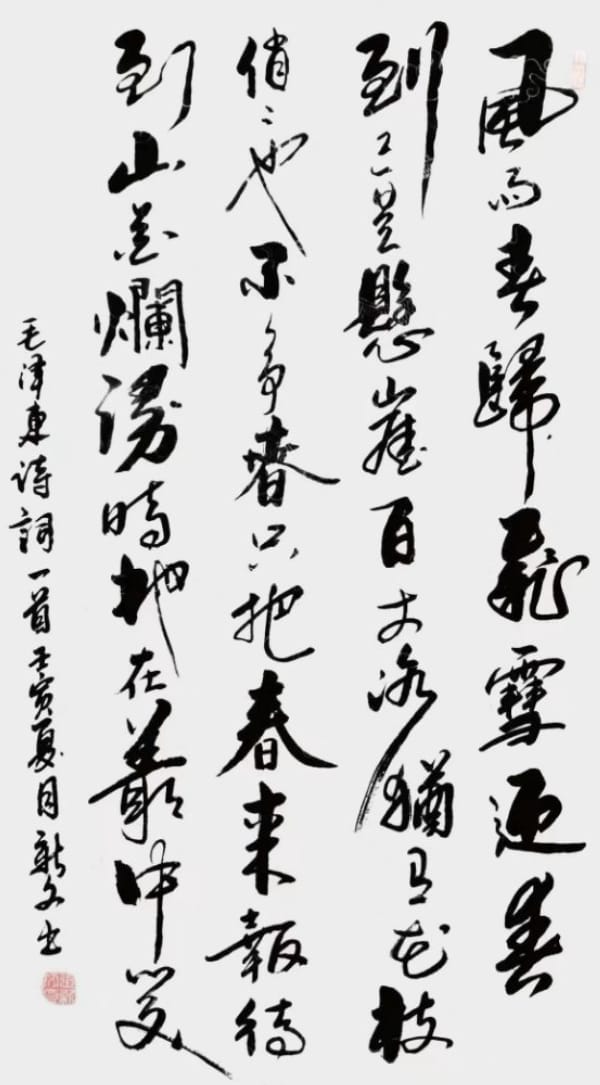 風雨春歸飛雪迎春
到已是懸崖百丈冰猶有花枝
俏俏也不争春只把春來報待
到山花爛漫時她在叢中笑
毛泽東诗詞一首壬寅夏月新文书